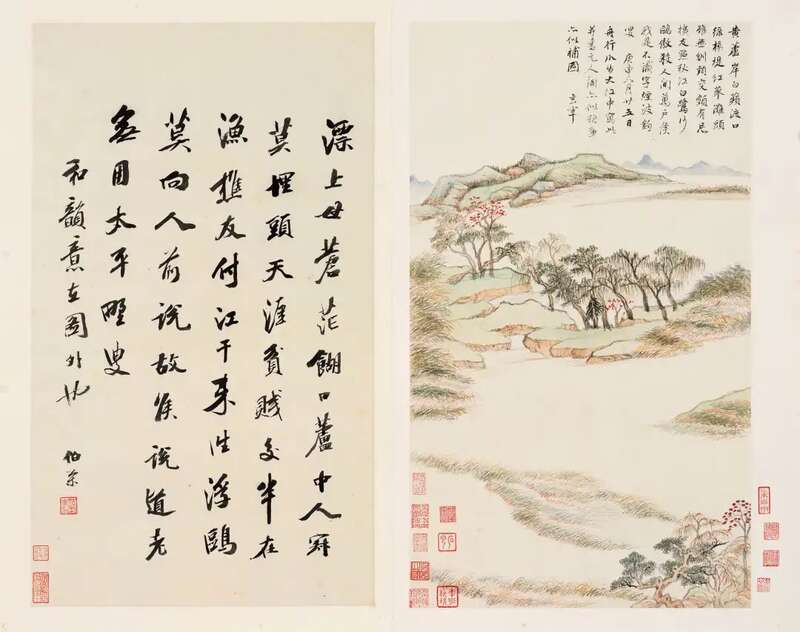 黃蘆岸白蘋渡口
綠楊堤紅蓼灘頭
雖無刎頸交頗有忘
機友點秋江白鷺沙
鷗傲殺人間萬戶侯
我是不識字煙波釣
叟 庚申八月廿五日
舟行 大江中寫此
并書元人詞
六似補圖
漂上母蒼茫餬口蘆中人寂
莫埋頭天涯貧賤交半在
漁樵友付江干來往浮鷗
莫向人前說故侯說道老
無用太平野叟
和韻意在圖外也 伯